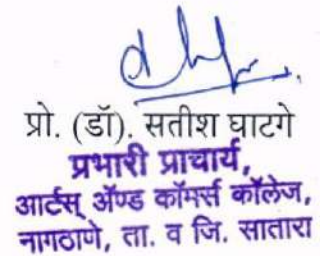 प्रो. (डॉ). सतीश घाटगे
प्रभारी प्राचार्य,
आर्टस् ॲण्ड कॉमर्स कॉलेज,
नागठाणे, ता. व जि. सातारा